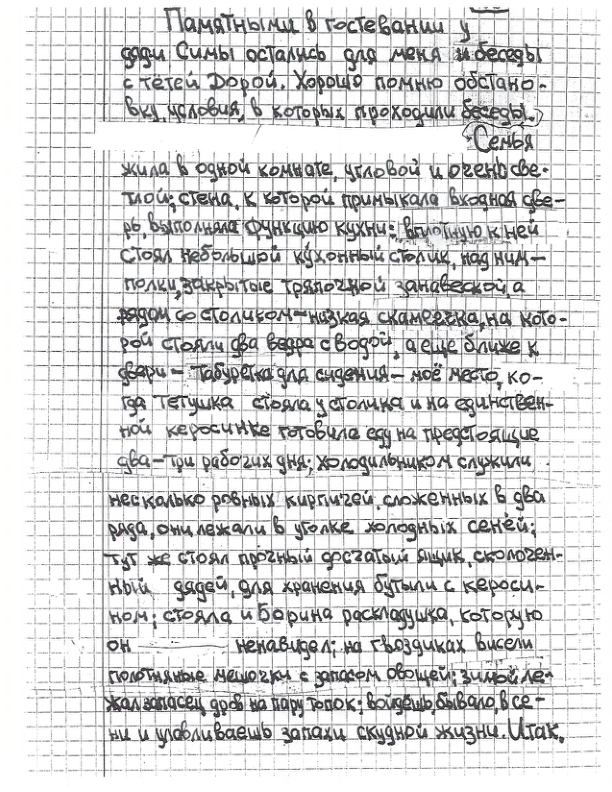 Памятными в гостевании у
дяди Симы остались для меня и беседы
с тётей Дорой. Хорошо помню обстано-
вку, условия, в которых проходили беседы.
Семья
жила в одной комнате, угловой и очень све-
тлой; стена, к которой примыкала входная две-
рь, выполняла функцию кухни: вплотную к ней
стоял небольшой кухонный столик, над ним –
полки, закрытые тряпочной занавеской, а
рядом со столиком – низкая скамеечка, на кото-
рой стояли два ведра с водой, а еще ближе к
двери – табуретка для сидения – моё место, ко-
гда тетушка стояла у столика и на единствен-
ной керосинке готовила еду на предстоящие
два – три рабочих дня; холодильником служили
несколько ровных кирпичей, сложенных в два
ряда, они лежали в уголке холодных сеней;
тут же стоял прочный досчатый ящик, сколочен-
ный дядей, для хранения бутыли с кероси-
ном; стояла и Борина раскладушка, которую
он ненавидел; на гвоздиках висели
полотняные мешочки с запасом овощей; зимой ле-
жал запасец дров на пару топок; войдёшь, бывало, в се-
ни и улавливаешь запахи скудной жизни. Итак,